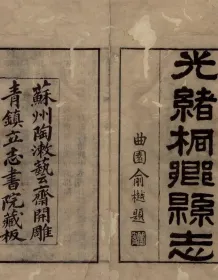 光緒桐鄉縣志
曲園俞樾題
蘇州陶漱藝齋開雕
青鎮立志書院藏板